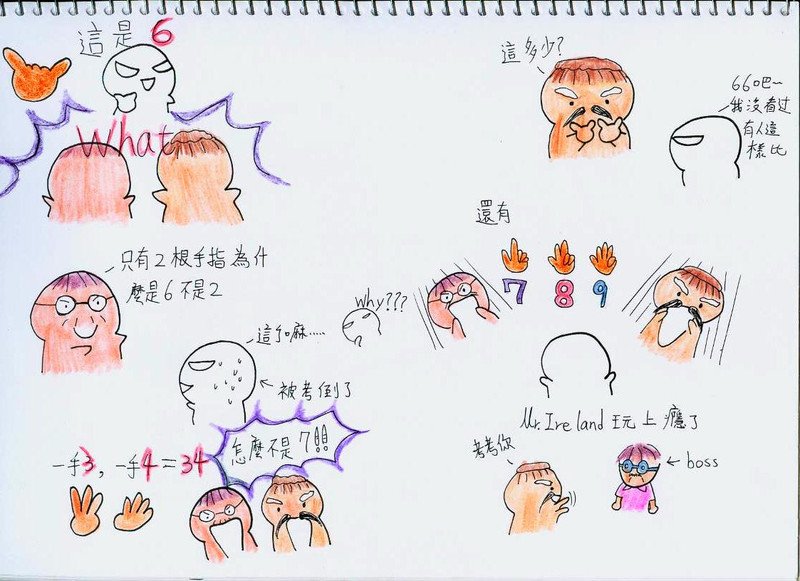 這是6
What
只有2根手指為什
麼是6不是2
這個嘛……
被考倒了
一手3，一手4=34
怎麼不是7!!
這多少?
66吧~
我沒看过
有人這
樣比
還有
7 8 9
why???
Mr.Ireland 玩上癮了
考考你
boss